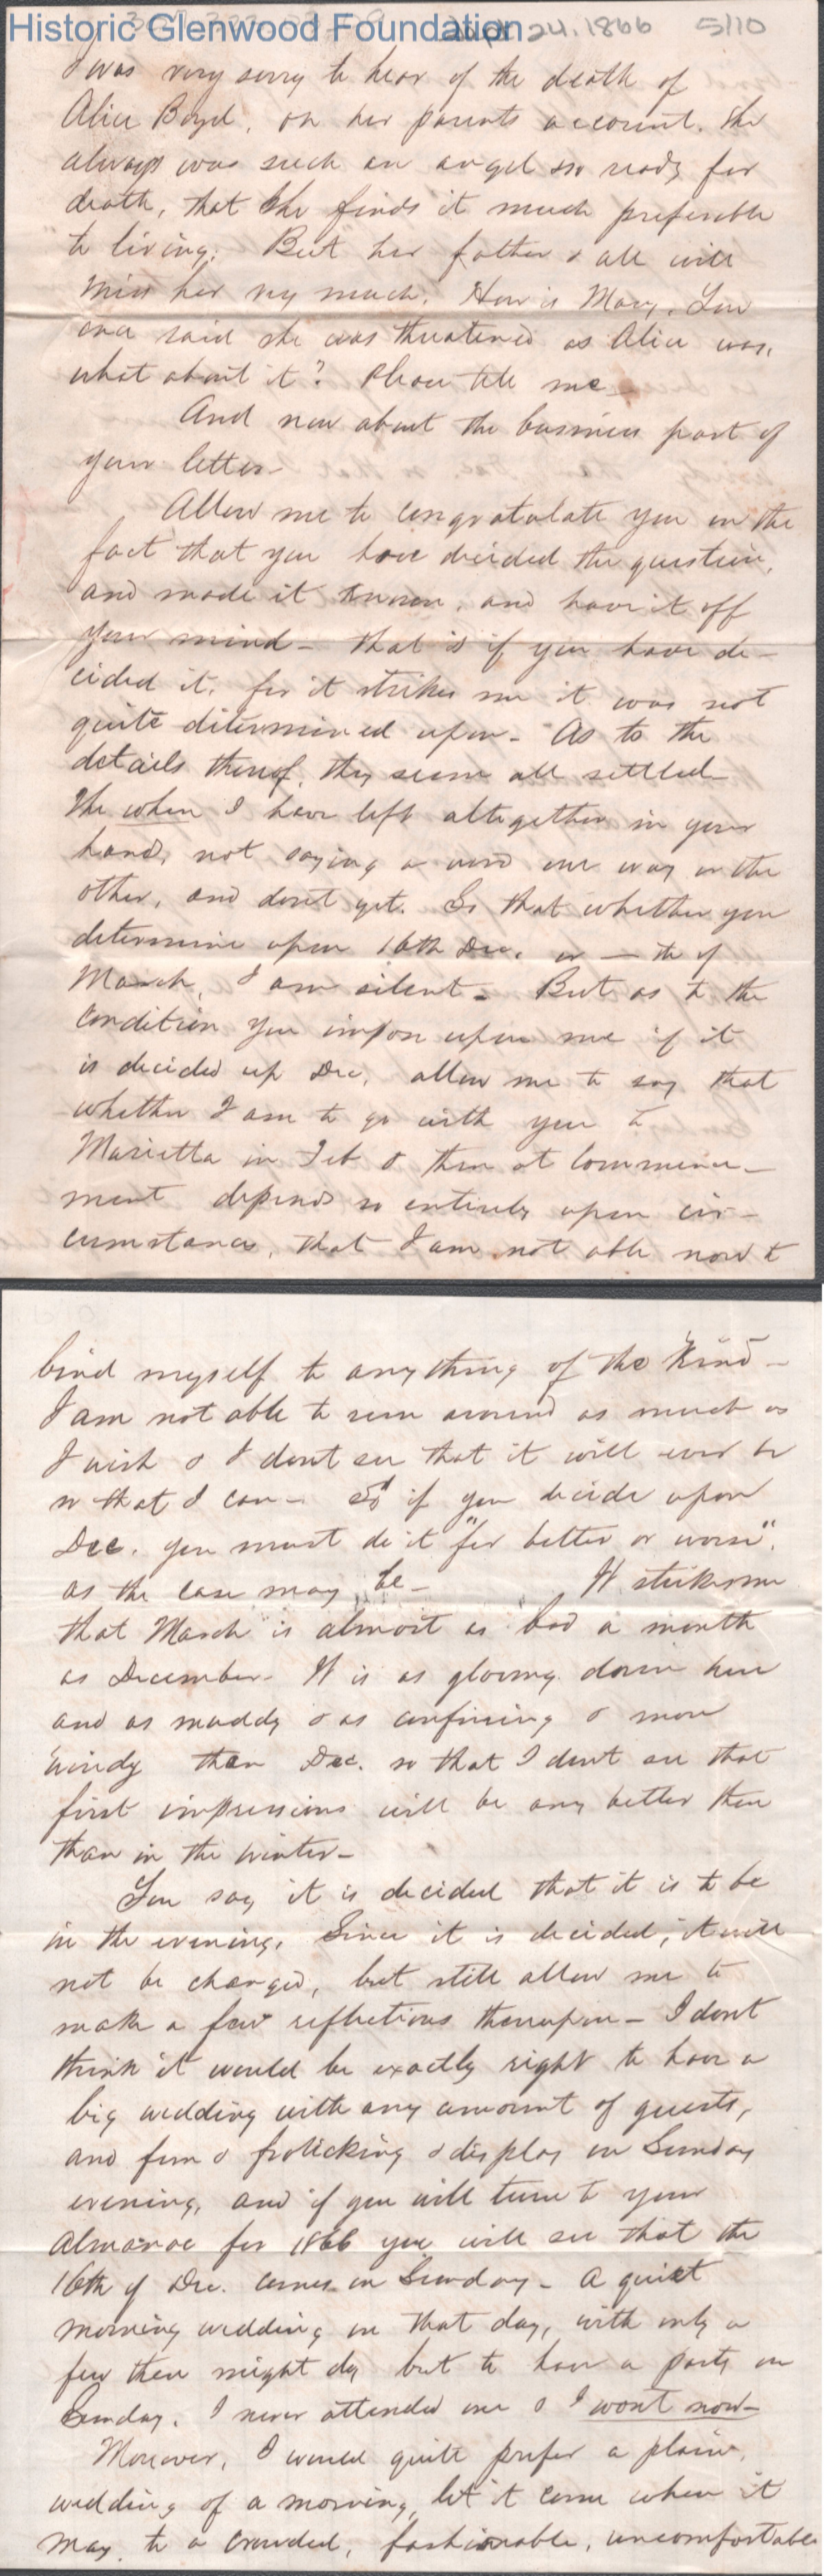 Historic Glenwood Foundation
24.1866 5/10
I was very sorry to hear of the death of
Alice Boyd, on her parents account. She
always was such an angel so ready for
death, that she finds it much preferable
to living. But her father & all will
miss her very much. How is Mary. You
once said she was threatened as Alice was,
what about it? Please tell me
And now about the business part of
your letter-
Allow me to congratulate you on the
fact that you have decided the question,
and made it known, and have it off
your mind - that is if you have de-
cided it, for it strikes me it was not
quite determined upon - As to the
details thereof, they seem all settled
The when I have left altogether in your
hands, not saying a word one way or the
other, and dont yet. So that whether you
determine upon 16th Dec. or — th of
March, I am silent - But as to the
condition you impose upon me if it
is decided up Dec, allow me to say that
whether I am to go with you to
Marietta in Feb & then at Commence-
ment depends so entirely upon cir-
cumstances, that I am not able now to
bind myself to anything of the kind -
I am not able to run around as much as
I wish & I dont see that it will ever be
so that I can - So if you decide upon
Dec. you must do it "for better or worse",
as the case may be - It strikes me
that March is almost as bad a month
as December - It is as gloomy down here
and as muddy & as confining & more
windy than Dec. so that I dont see that
first impressions will be any better then
than in the winter -
You say it is decided that it is to be
in the evening. Since it is decided, it will
not be changed, but still allow me to
make a few reflections thereupon - I dont
think it would be exactly right to have a
big wedding with any amount of guests,
and fun & frolicking & display on Sunday
evening, and if you will turn to your
Almanac for 1866 you will see that the
16th of Dec. comes on Sunday - A quiet
morning wedding on that day, with only a
few then might do but to have a party on
Sunday. I never attended one & I wont now -
Moreover, I would quite prefer a plain,
wedding of a morning, let it come when it
may, to a crowded, fashionable, uncomfortable